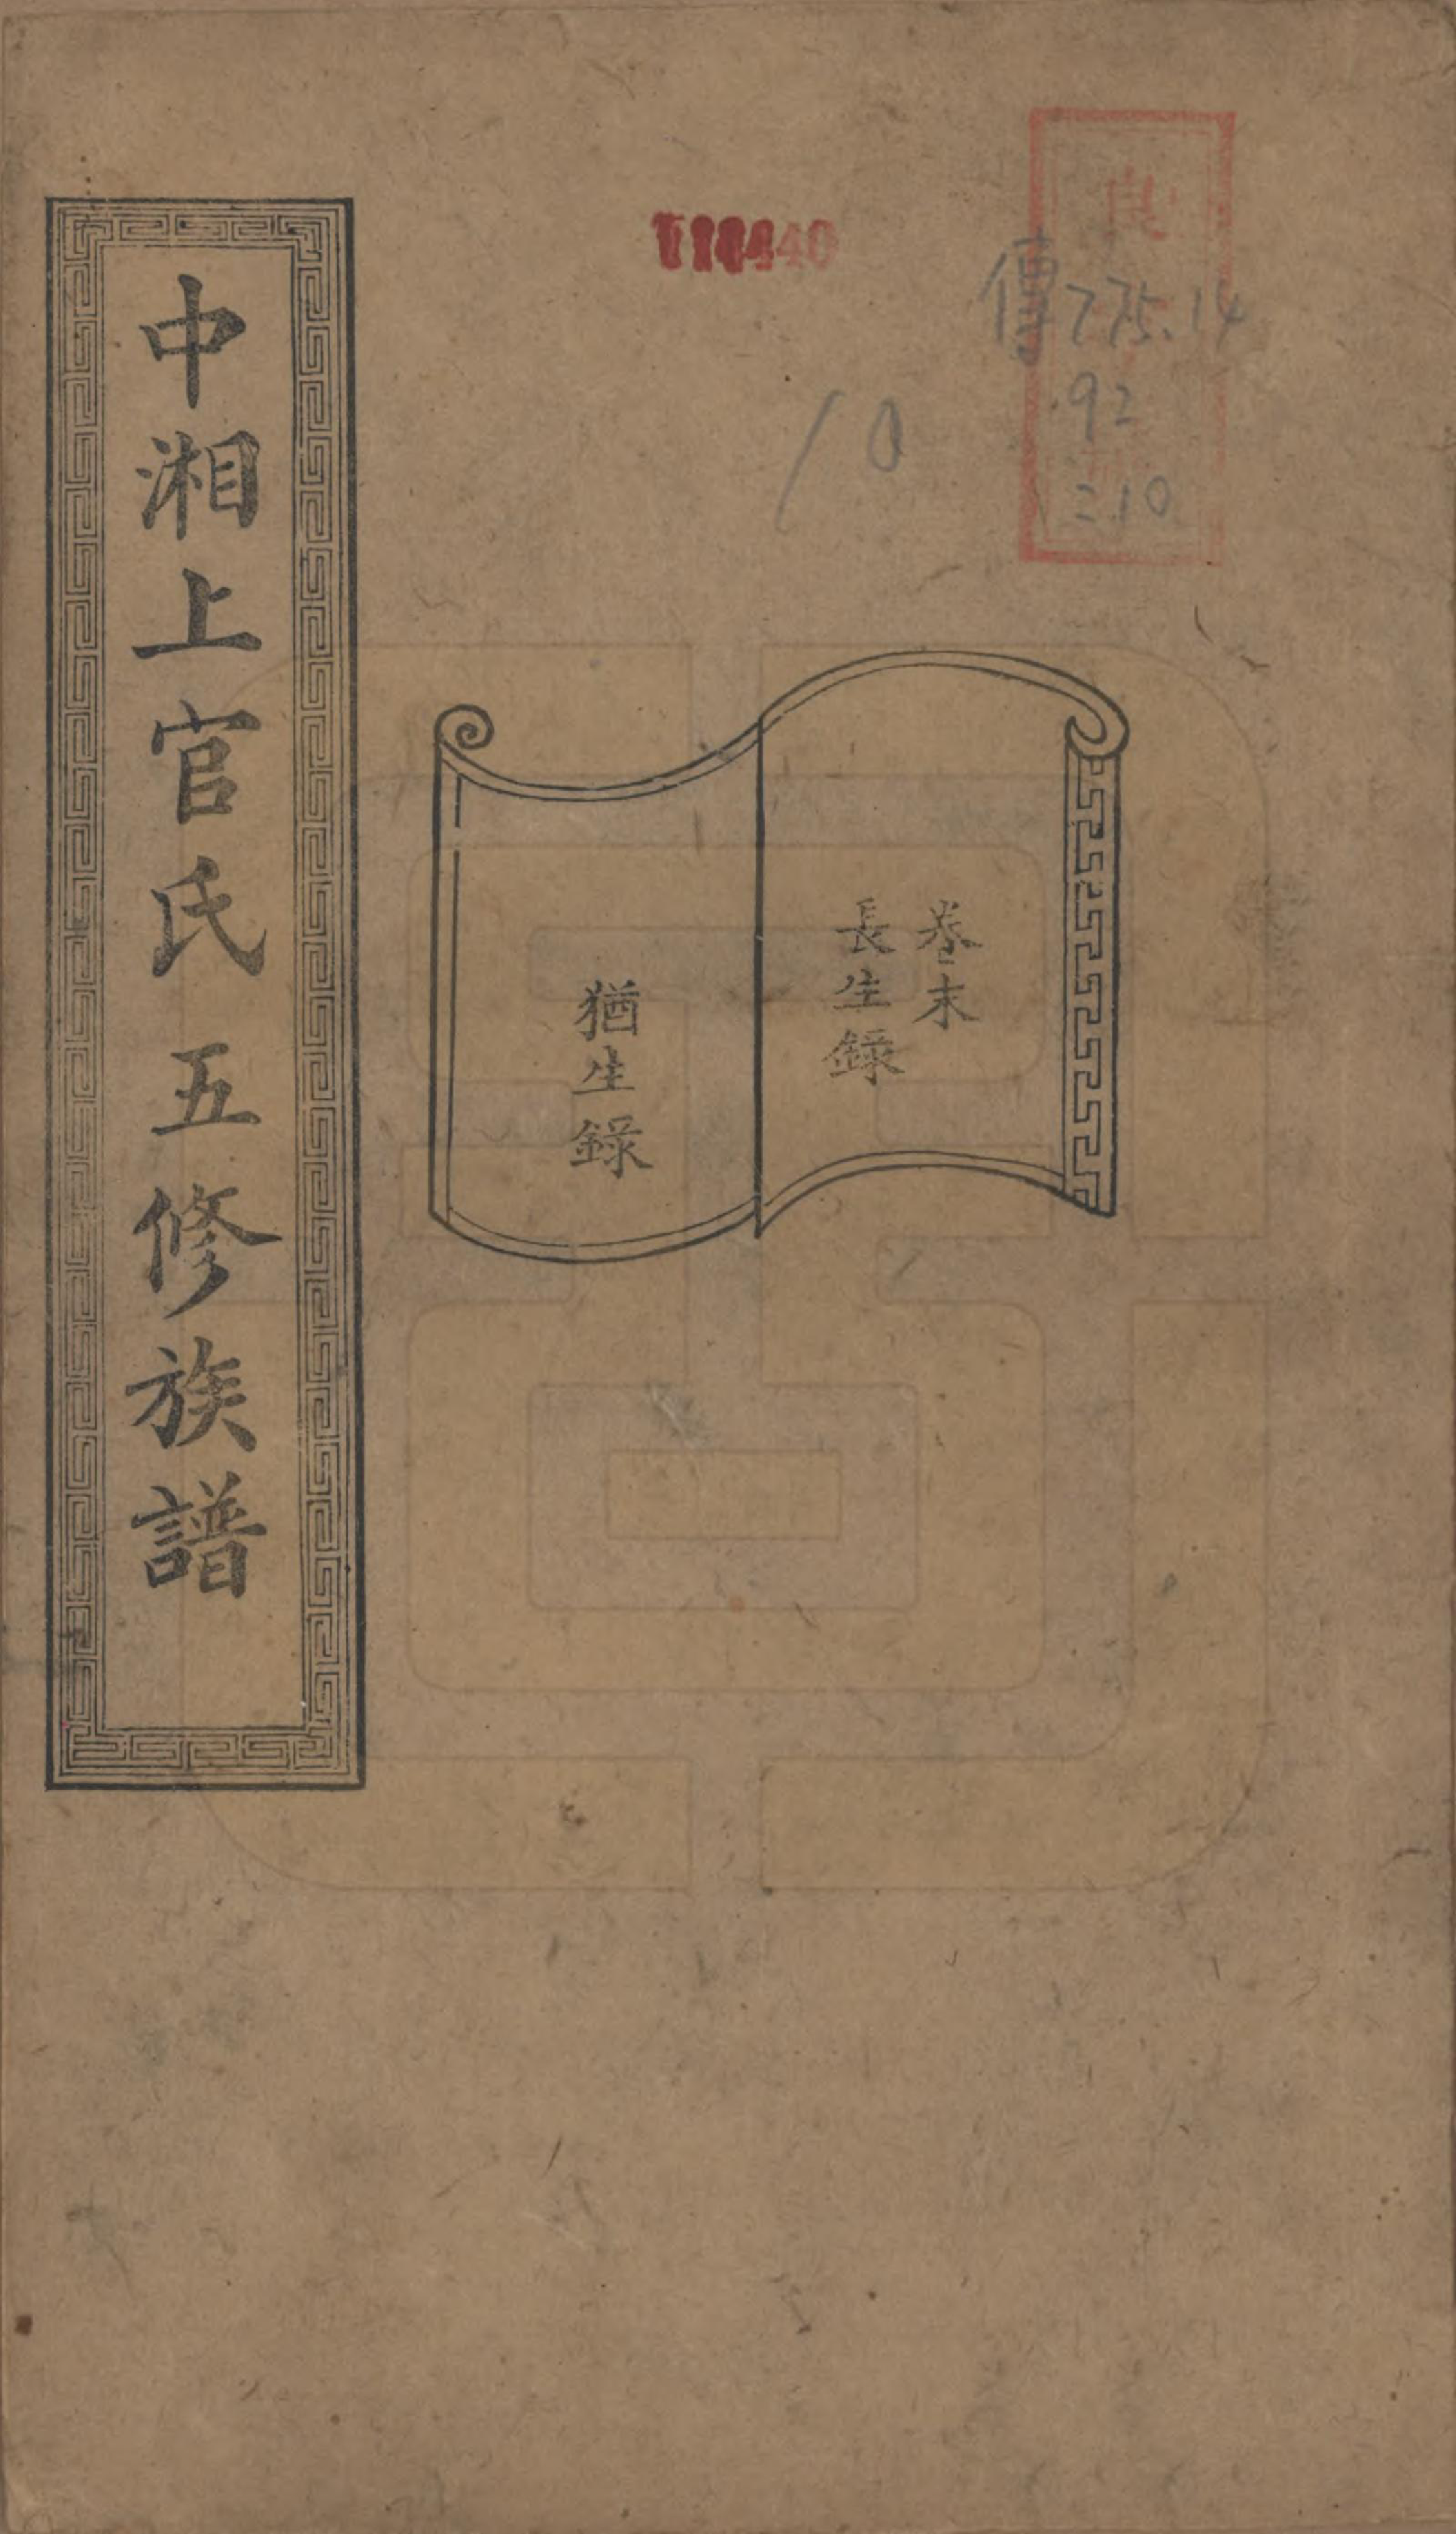 傳775.14
92
:10
10
卷末
長生錄
猶生錄
中湘上官氏五修族譜